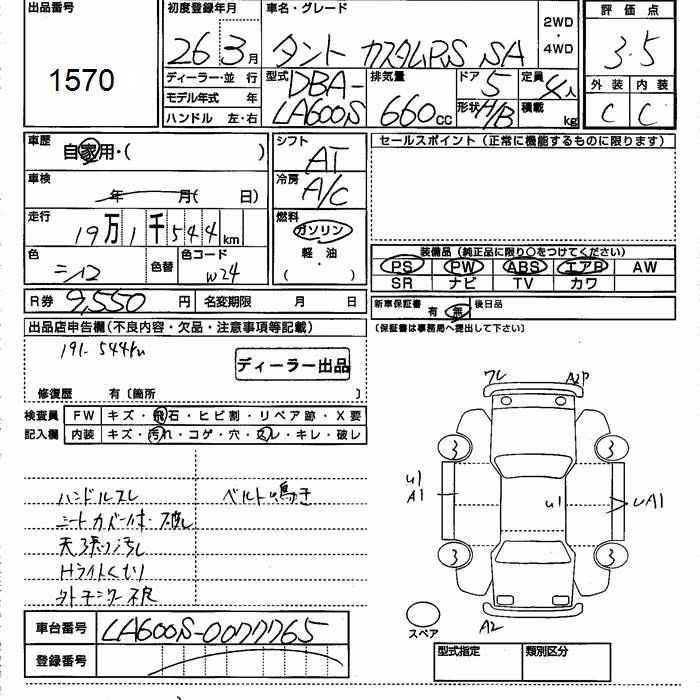 出品番号
1570
初度登録年月
26 3月
車名・グレード
タント カスタムRS SA
2WD
・
4WD
評価点
3.5
外装 内装
C C
ディーラー・並 行
モデル年式 年
ハンドル 左・右
型式 DBA-
LA600S
排気量
660cc
ドア 5
形状 H/B
定員 4人
積載 kg
車歴
自家用・( )
シフト
AT
車検
年 月( 日)
冷房
A/C
走行
19万1千544km
燃料
ガソリン
軽・油
( )
色
色替
色コード
W24
R券 9,550円 名変期限 月 日
セールスポイント(正常に機能するものに限ります)
装備品(純正品に限り○をつけてください)
PS PW ABS エアB AW
SR ナビ TV カワ
新車保証書
有・無
後日品
〔保証書は事務局へ提出して下さい〕
出品店申告欄(不良内容・欠品・注意事項等記載)
191-544km
ディーラー出品
修復歴 有〔箇所 〕
検査員 FW キズ・飛石・ヒビ割・リペア跡・X要
記入欄 内装 キズ・汚れ・コゲ・穴・スレ・キレ・破レ
ハンドルスレ
ベルト鳴き
シートカバー付・破レ
天張り汚レ
Hライトくもり
外モニター不良
車台番号 LA600S-0077765
登録番号
フレ A2P
3 3
U1
A1
U1
UA1
3 3
スペア
A2
型式指定 類別区分